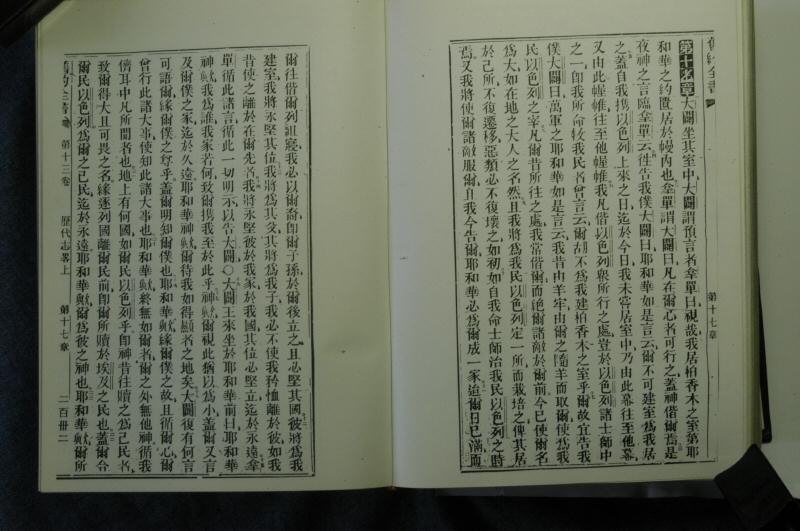 舊約全書
第十七章
第十七章大闢坐其室中大闢謂預言者拿單曰視哉我居柏香木之室第耶
和華之約匱居於幔內也拿單謂大闢曰凡在爾心者可行之蓋神偕爾焉是
夜神之言臨拿單云往告我僕大闢曰耶和華如是言云爾不可建室爲我居
之蓋自我攜以色列上來之日迄於今日我未嘗居室中乃由此幕往至他幕
又由此幄帷往至他幄帷我凡偕以色列衆所行之處豈於以色列諸士師中
之一卽我所命牧我民者曾言云爾胡不爲我建柏香木之室乎爾故宜告我
僕大闢曰萬軍之耶和華如是言云我昔由羊牢由爾之隨羊而取爾使爲我
民以色列之宰凡爾昔所往之處我常偕爾而絕爾諸敵於爾前今已使爾名
爲大如在地之大人之名然且我將爲我民以色列定一所而栽培之俾其居
於己所不復遷移惡類必不復壞之如初如自我命士師治我民以色列之時
焉又我將使爾諸敵服爾自我今告爾耶和華必爲爾成一家迨爾日已滿而
爾往偕爾列祖寢我必以爾裔卽爾子孫於爾後立之且必堅其國彼將爲我
建室我將永堅其位我將爲其父其將爲我子我必不使我矜恤離於彼如我
昔使之離於在爾先者我將永堅彼於我家於我國其位必堅立迄於永遠拿
單循此諸言循此一切明示以告大闢○大闢王來坐於耶和華前曰耶和華
神歟我爲誰我家若何致爾攜我至於此乎神歟爾視此猶以爲小蓋爾又言
及爾僕之家迄於久遠耶和華神歟爾待我如得顯者之地矣大闢復有何言
可語爾緣爾僕之尊乎蓋爾明知爾僕也耶和華歟緣爾僕之故且循爾心爾
曾行此諸大事使知此諸大事也耶和華歟終無如爾者爾之外無他神循我
儕耳中凡所聞者也地上有何國如爾民以色列乎卽神昔往贖之爲己民者
致爾得大且可畏之名緣逐列國離爾民前卽爾所贖於埃及之民也蓋爾令
爾民以色列爲爾之己民迄於永遠耶和華歟爾爲彼之神也耶和華歟爾所
舊約全書
第十三卷
歷代志畧上
第十七章
二百卅二